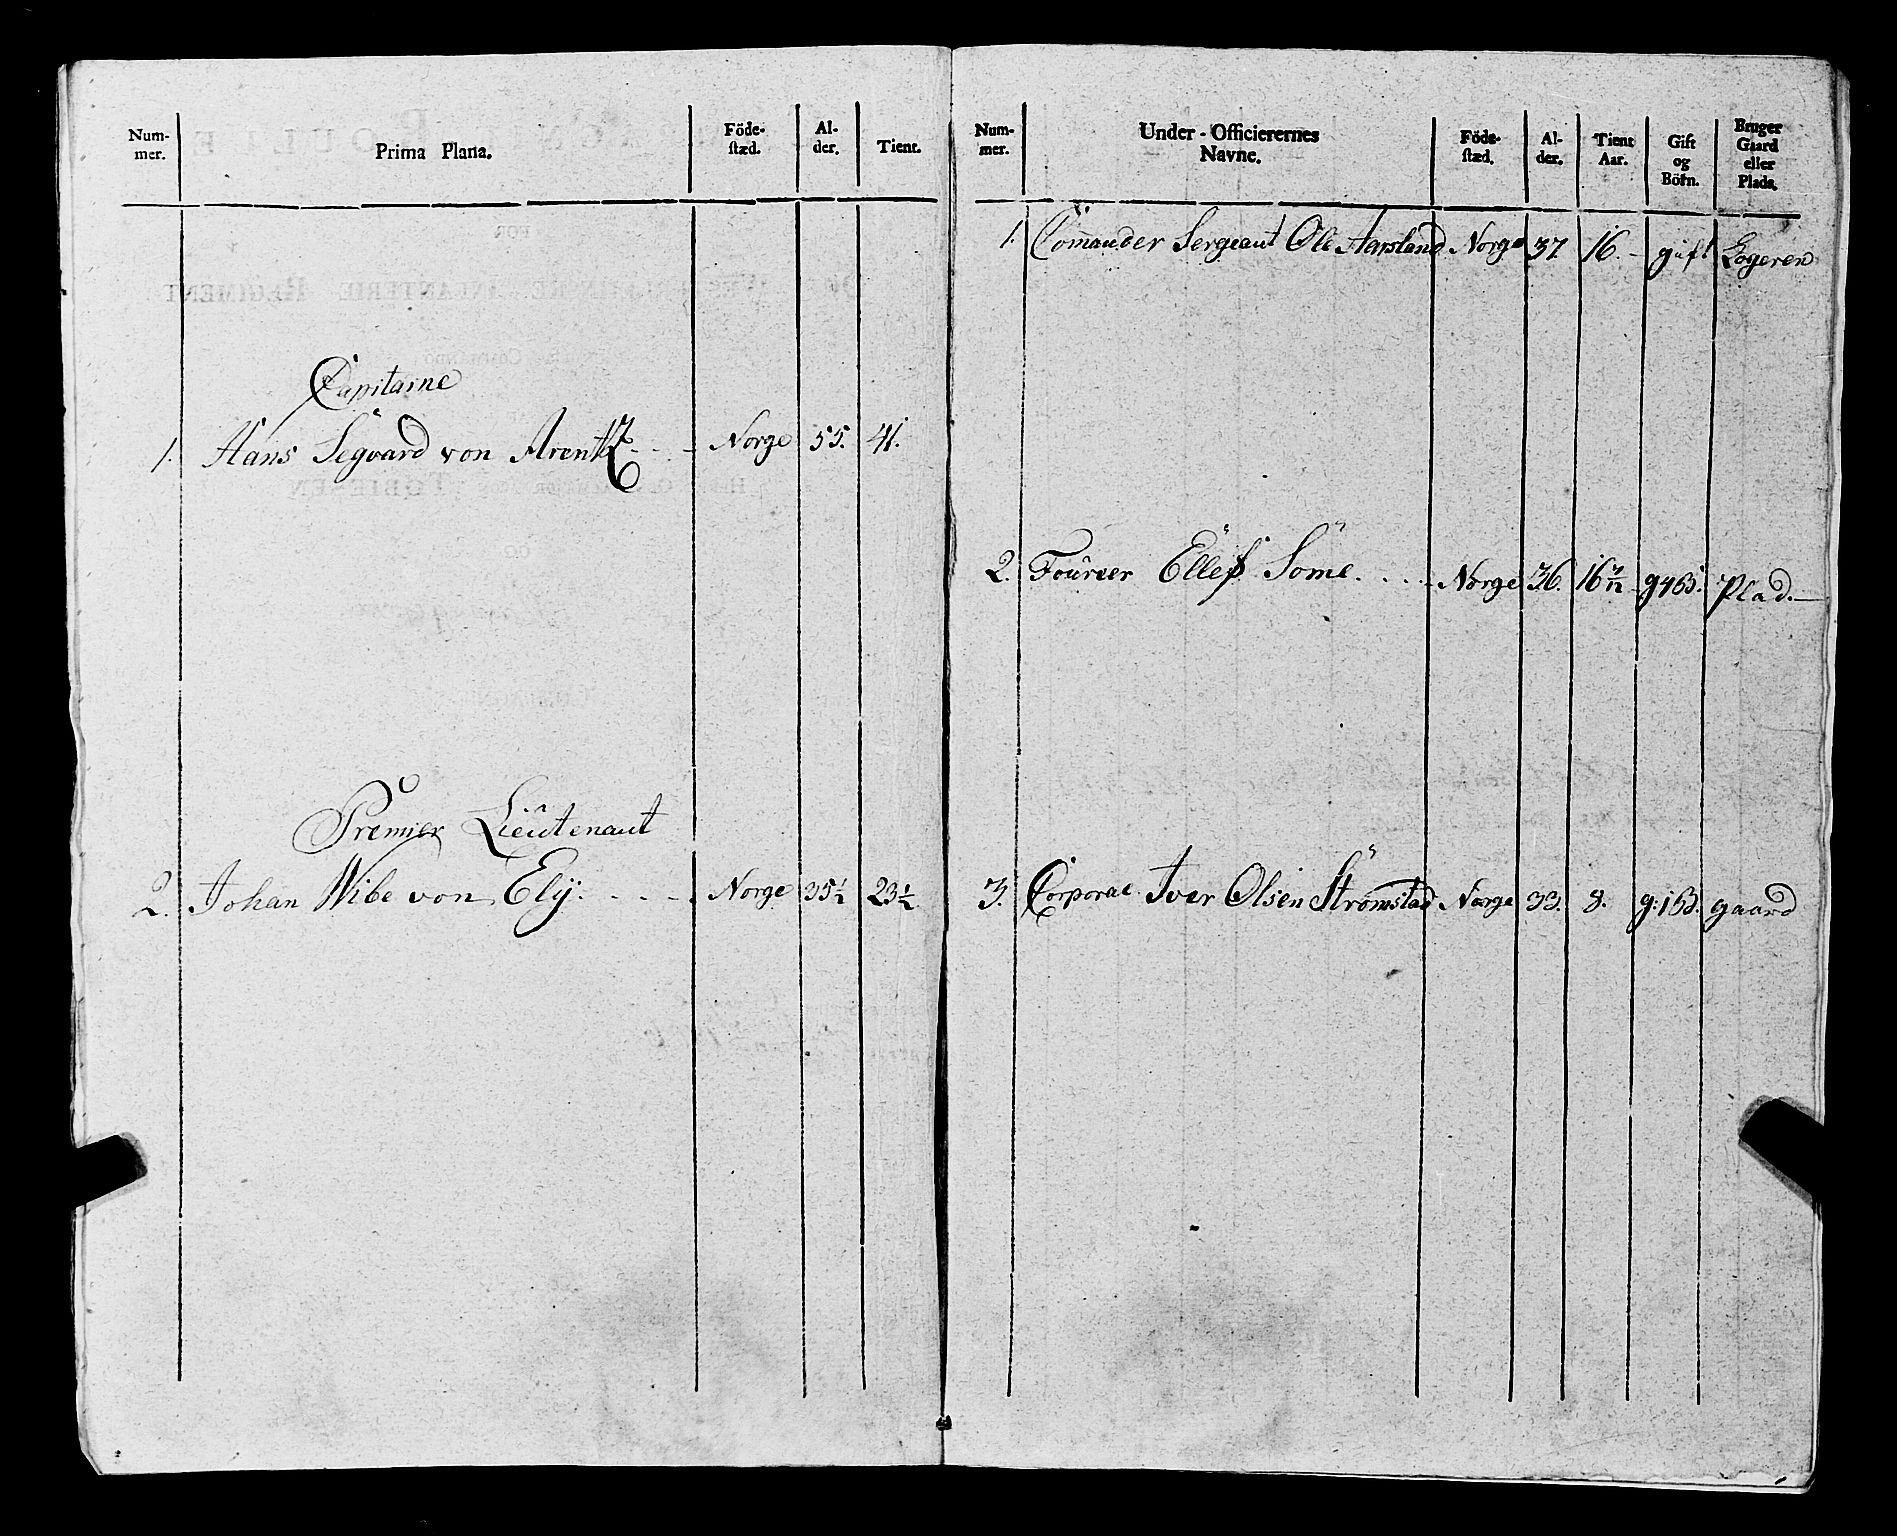 Num-mer. Prima Plana. Föde-stæd. Al-der. Tient.
Capitaine
1. Hans Segvard von Arentz Norge 55. 41.
Premier Lieutenant
2. Johan Wibe von Ely. Norge 35½ 23½.
Num-mer. Under-Officierernes Navne. Föde-stæd. Al-der. Tient Aar. Gift og Börn. Bruger Gaard eller Plads.
1. Com̄ander Sergeant Ole Aarsland Norge 37 16. gift Logeren
2. Foureer Ellef Söme. Norge 36. 16 g 4 B. Plad.
3. Corporal Iver Olsen Strömstad Norge 33. 8. g: 1 B. gaard